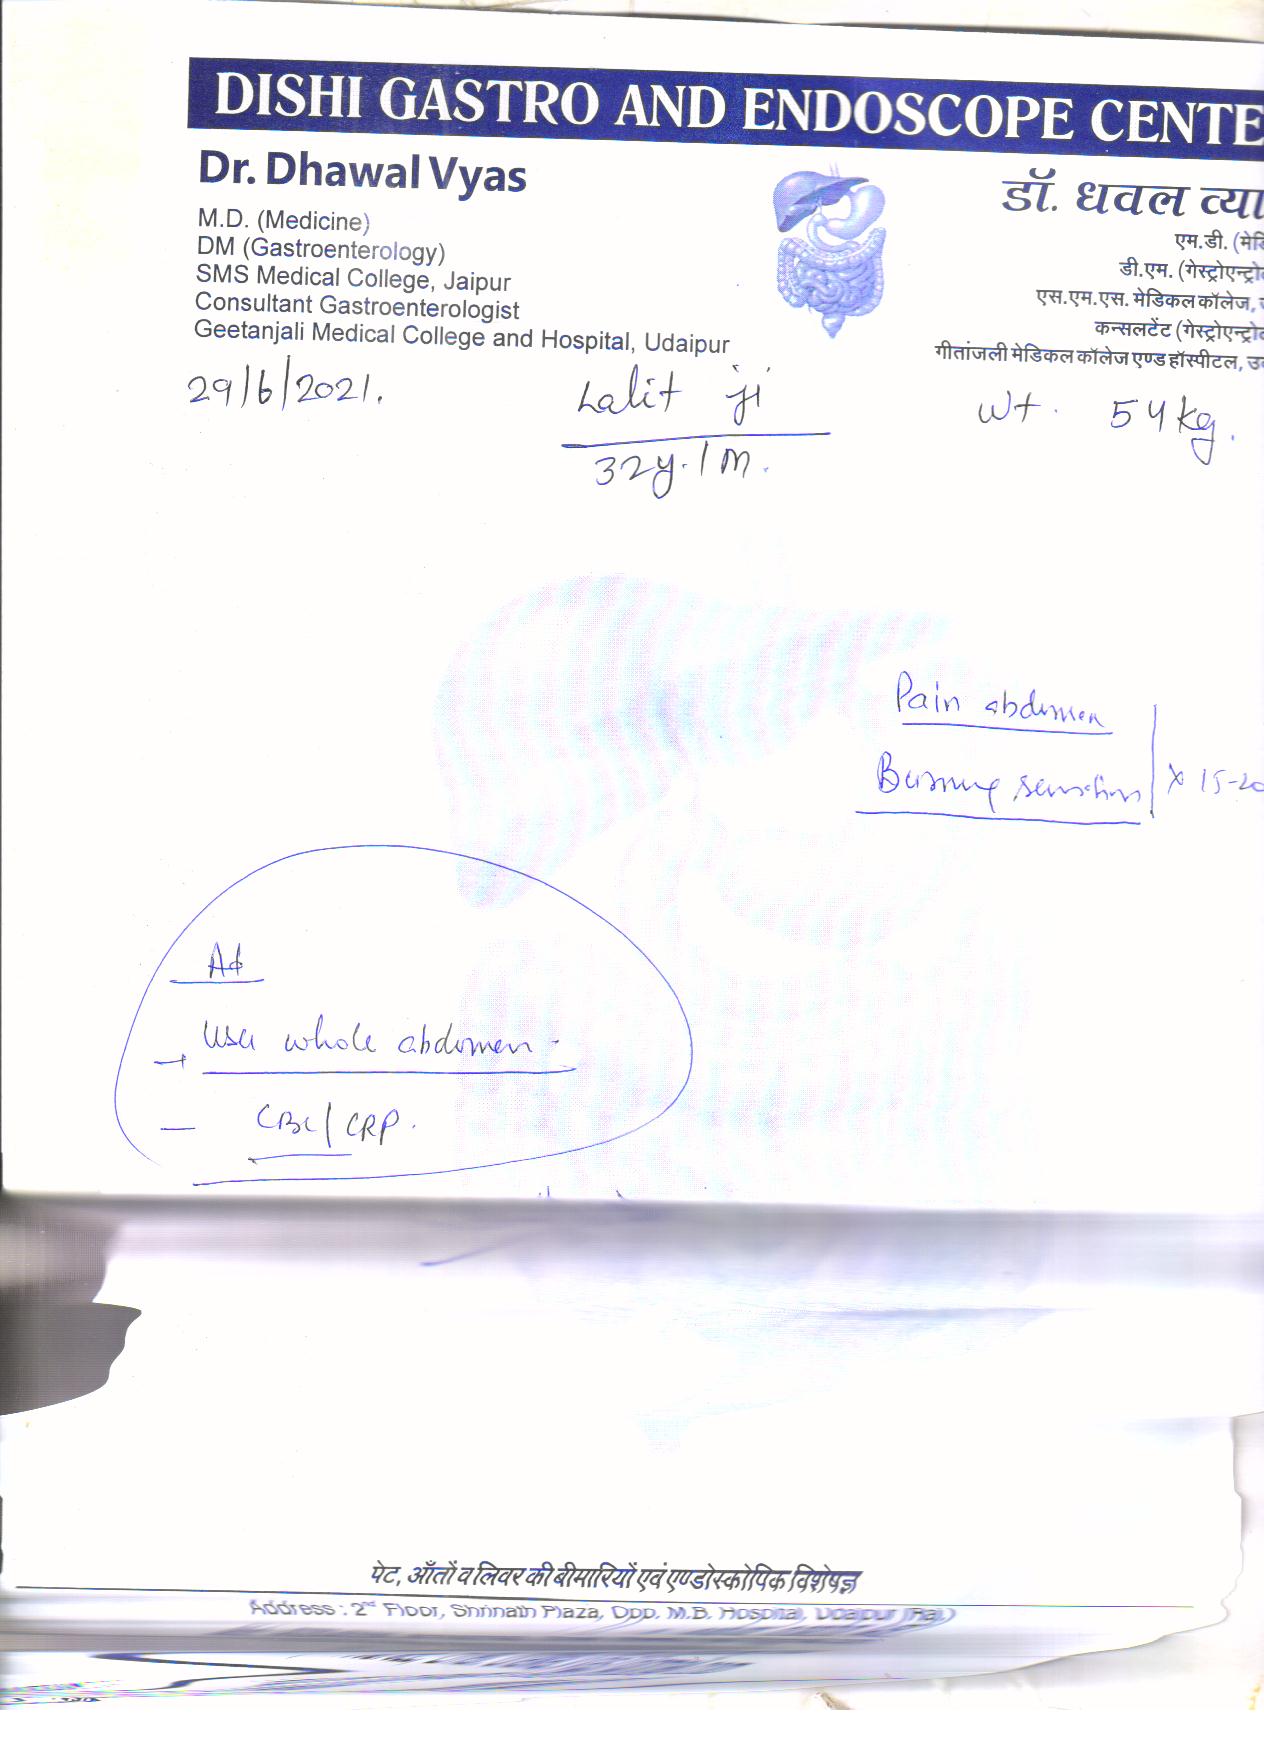 DISHI GASTRO AND ENDOSCOPE CENTE
Dr. Dhawal Vyas
M.D. (Medicine)
DM (Gastroenterology)
SMS Medical College, Jaipur
Consultant Gastroenterologist
Geetanjali Medical College and Hospital, Udaipur
डॉ. धवल व्या
एम.डी. (मेडि
डी.एम. (गेस्ट्रोएन्ट्रोल
एस.एम.एस. मेडिकल कॉलेज,
कन्सलटेंट (गेस्ट्रोएन्ट्रोल
गीतांजली मेडिकल कॉलेज एण्ड हॉस्पीटल, उद
29/6/2021.
Lalit ji
32y./M.
wt. 54 kg.
Pain abdomen
Burning sensation x 15-20
Ad
USG whole abdomen
CBC/CRP.
पेट, आँतों व लिवर की बीमारियों एवं एण्डोस्कोपिक विशेषज्ञ
Address : 2nd Floor, Shrinath Plaza, Opp. M.B. Hospital, Udaipur (Raj.)